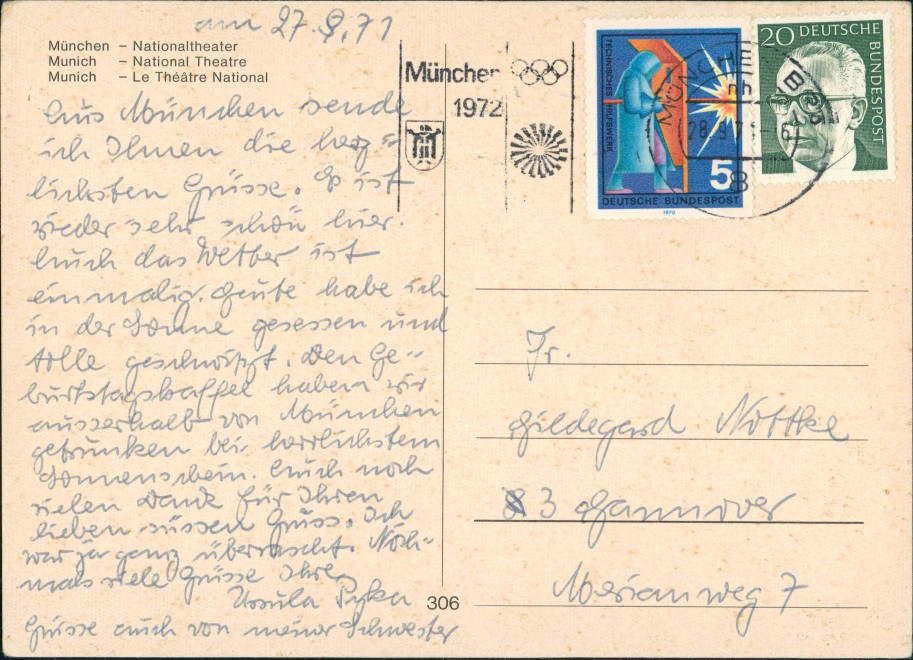 am 27.9.71
München – Nationaltheater
Munich – National Theatre
Munich – Le Théâtre National
Aus München sende
ich Ihnen die herz-
lichsten Grüsse. Es ist
wieder sehr schön hier.
Auch das Wetter ist
einmalig. Heute habe ich
in der Sonne gesessen und
tolle geschwitzt. Den Ge-
burtstagskaffee haben wir
ausserhalb von München
getrunken bei herrlichstem
Sonnenschein. Auch noch
vielen Dank für Ihren
lieben süssen Gruss. Ich
war ja ganz überrascht. Noch-
mals viele Grüsse Ihre
Ursula
Grüsse auch von meiner Schwester
306
München
1972
TECHNISCHES HILFSWERK
5
DEUTSCHE BUNDESPOST
1970
20 DEUTSCHE
BUNDESPOST
MÜNCHEN
28.9.71
8
Fr.
Hildegard Nottke
3 Hannover
Merianweg 7